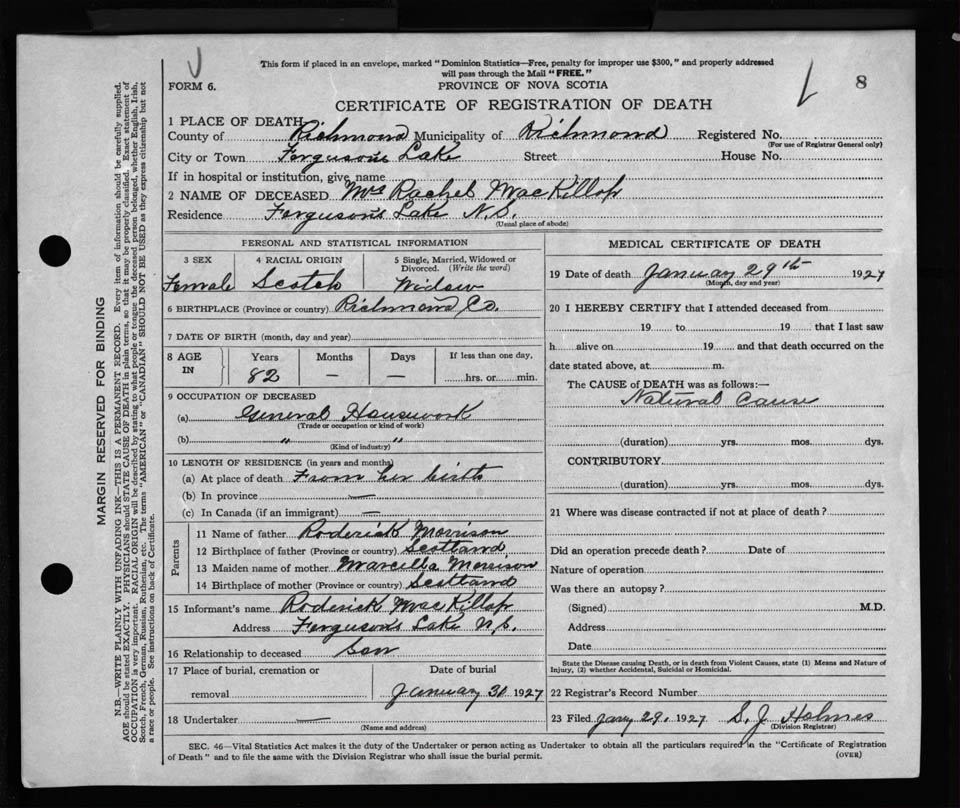 This form if placed in an envelope, marked "Dominion Statistics—Free, penalty for improper use $300," and properly addressed
will pass through the Mail "FREE."
FORM 6.
PROVINCE OF NOVA SCOTIA
8
CERTIFICATE OF REGISTRATION OF DEATH
1 PLACE OF DEATH
County of Richmond Municipality of Richmond Registered No.
(For use of Registrar General only)
City or Town Ferguson's Lake Street House No.
If in hospital or institution, give name
2 NAME OF DECEASED Mrs Rachel MacKillop
Residence Ferguson's Lake N.S.
(Usual place of abode)
PERSONAL AND STATISTICAL INFORMATION
3 SEX 4 RACIAL ORIGIN 5 Single, Married, Widowed or
Divorced. (Write the word)
Female Scotch Widow
6 BIRTHPLACE (Province or country) Richmond Co.
7 DATE OF BIRTH (month, day and year)
8 AGE IN Years Months Days If less than one day,
82 — — hrs. or min.
9 OCCUPATION OF DECEASED
(a) General Housework
(Trade or occupation or kind of work)
(b) " "
(Kind of industry)
10 LENGTH OF RESIDENCE (in years and months)
(a) At place of death From her birth
(b) In province —
(c) In Canada (if an immigrant) —
Parents
11 Name of father Roderick Morrison
12 Birthplace of father (Province or country) Scotland
13 Maiden name of mother Marcella Morrison
14 Birthplace of mother (Province or country) Scotland
15 Informant's name Roderick MacKillop
Address Ferguson's Lake N.S.
16 Relationship to deceased Son
17 Place of burial, cremation or Date of burial
removal January 31 1927
18 Undertaker —
(Name and address)
MEDICAL CERTIFICATE OF DEATH
19 Date of death January 29th 1927
(Month, day and year)
20 I HEREBY CERTIFY that I attended deceased from
19 to 19 that I last saw
h alive on 19 and that death occurred on the
date stated above, at m.
The CAUSE of DEATH was as follows:—
Natural Cause
(duration) yrs. mos. dys.
CONTRIBUTORY
(duration) yrs. mos. dys.
21 Where was disease contracted if not at place of death?
Did an operation precede death? Date of
Nature of operation
Was there an autopsy?
(Signed) M.D.
Address
Date
State the Disease causing Death, or in death from Violent Causes, state (1) Means and Nature of
Injury, (2) whether Accidental, Suicidal or Homicidal.
22 Registrar's Record Number
23 Filed Jany 29. 1927. S. J. Holmes
(Division Registrar)
SEC. 46—Vital Statistics Act makes it the duty of the Undertaker or person acting as Undertaker to obtain all the particulars required in the "Certificate of Registration
of Death" and to file the same with the Division Registrar who shall issue the burial permit.
(OVER)
MARGIN RESERVED FOR BINDING
N.B.—WRITE PLAINLY WITH UNFADING INK—THIS IS A PERMANENT RECORD. Every item of information should be carefully supplied.
AGE should be stated EXACTLY. PHYSICIANS should STATE CAUSE OF DEATH in plain terms, so that it may be properly classified. Exact statement of
OCCUPATION is very important. RACIAL ORIGIN will be described by stating to what people or tongue the deceased person belonged, whether English, Irish,
Scotch, French, German, Russian, Ruthenian, etc. The terms "AMERICAN" or "CANADIAN" SHOULD NOT BE USED as they express citizenship but not
a race or people. See instructions on back of Certificate.